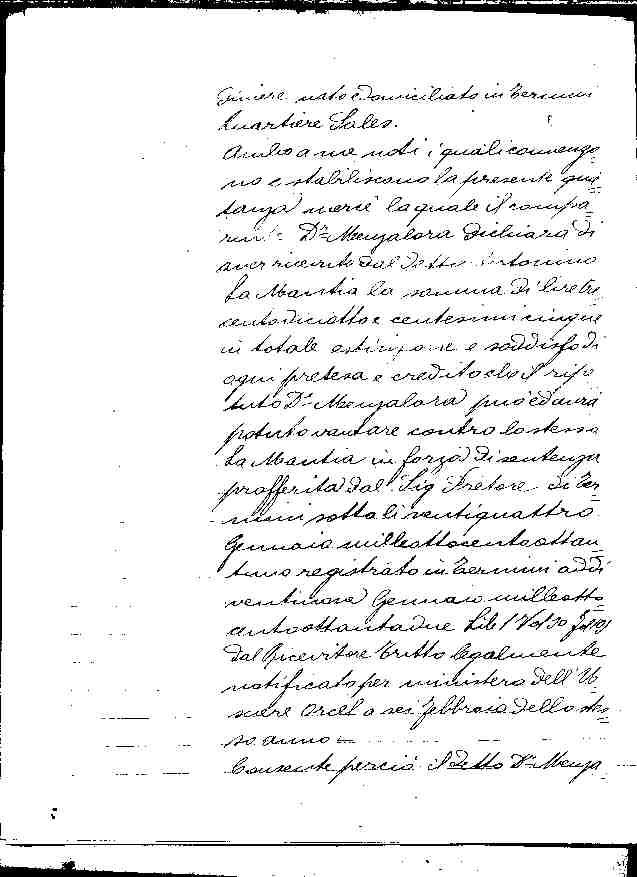 giniere nato e domiciliato in Termini
Quartiere Sales.
Ambo a me noti i quali convengo
no e stabiliscono la presente qui
tanza mercé la quale il compa
rente Dr. Mengalora dichiara di
aver ricevuto dal detto Antonino
La Mantia la somma di lire tre
centodiciotto e centesimi cinque
in totale estinzione e soddisfo di
ogni pretesa e credito che il ripe
tuto Dr. Mengalora può ed avrà
potuto vantare contro lo stesso
La Mantia in forza di sentenza
profferita dal Sig. Pretore di Ter
mini sotto li ventiquattro
Gennaio milleottocentoottan
tuno registrato in Termini addì
ventinove Gennaio milleotto
centoottantadue Lib. 1 Vol 30
dal Ricevitore Tritto legalmente
notificato per ministero dell'U
sciere Orcel a sei febbraio dello stes
so anno =
Consente perciò il detto Dr. Menga